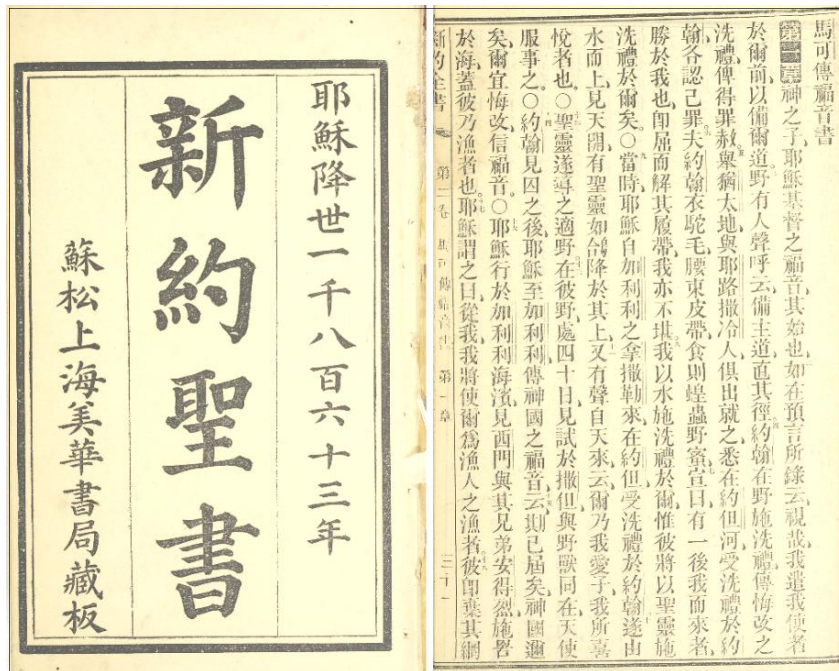 耶穌降世一千八百六十三年
新約聖書
蘇松上海美華書局藏板
馬可傳福音書
第一章神之子耶穌基督之福音其始也如在預言所錄云視哉我遣我使者
於爾前以備爾道野有人聲呼云備主道直其徑約翰在野施洗禮傳悔改之
洗禮俾得罪赦舉猶太地與耶路撒冷人俱出就之悉在約但河受洗禮於約
翰各認己罪夫約翰衣駝毛腰束皮帶食則蝗蟲野蜜宣曰有一後我而來者
勝於我也卽屈而解其履帶我亦不堪我以水施洗禮於爾惟彼將以聖靈施
洗禮於爾矣○當時耶穌自加利利之拿撒勒來在約但受洗禮於約翰遂由
水而上見天開有聖靈如鴿降於其上又有聲自天來云爾乃我愛子我所喜
悅者也○聖靈遂導之適野在彼野處四十日見試於撒但與野獸同在天使
服事之○約翰見囚之後耶穌至加利利傳神國之福音云期已屆矣神國邇
矣爾宜悔改信福音○耶穌行於加利利海濱見西門與其兄弟安得烈施罟
於海蓋彼乃漁者也耶穌謂之曰從我我將使爾爲漁人之漁者彼卽棄其網
新約全書 第二卷 馬可傳福音書 第一章